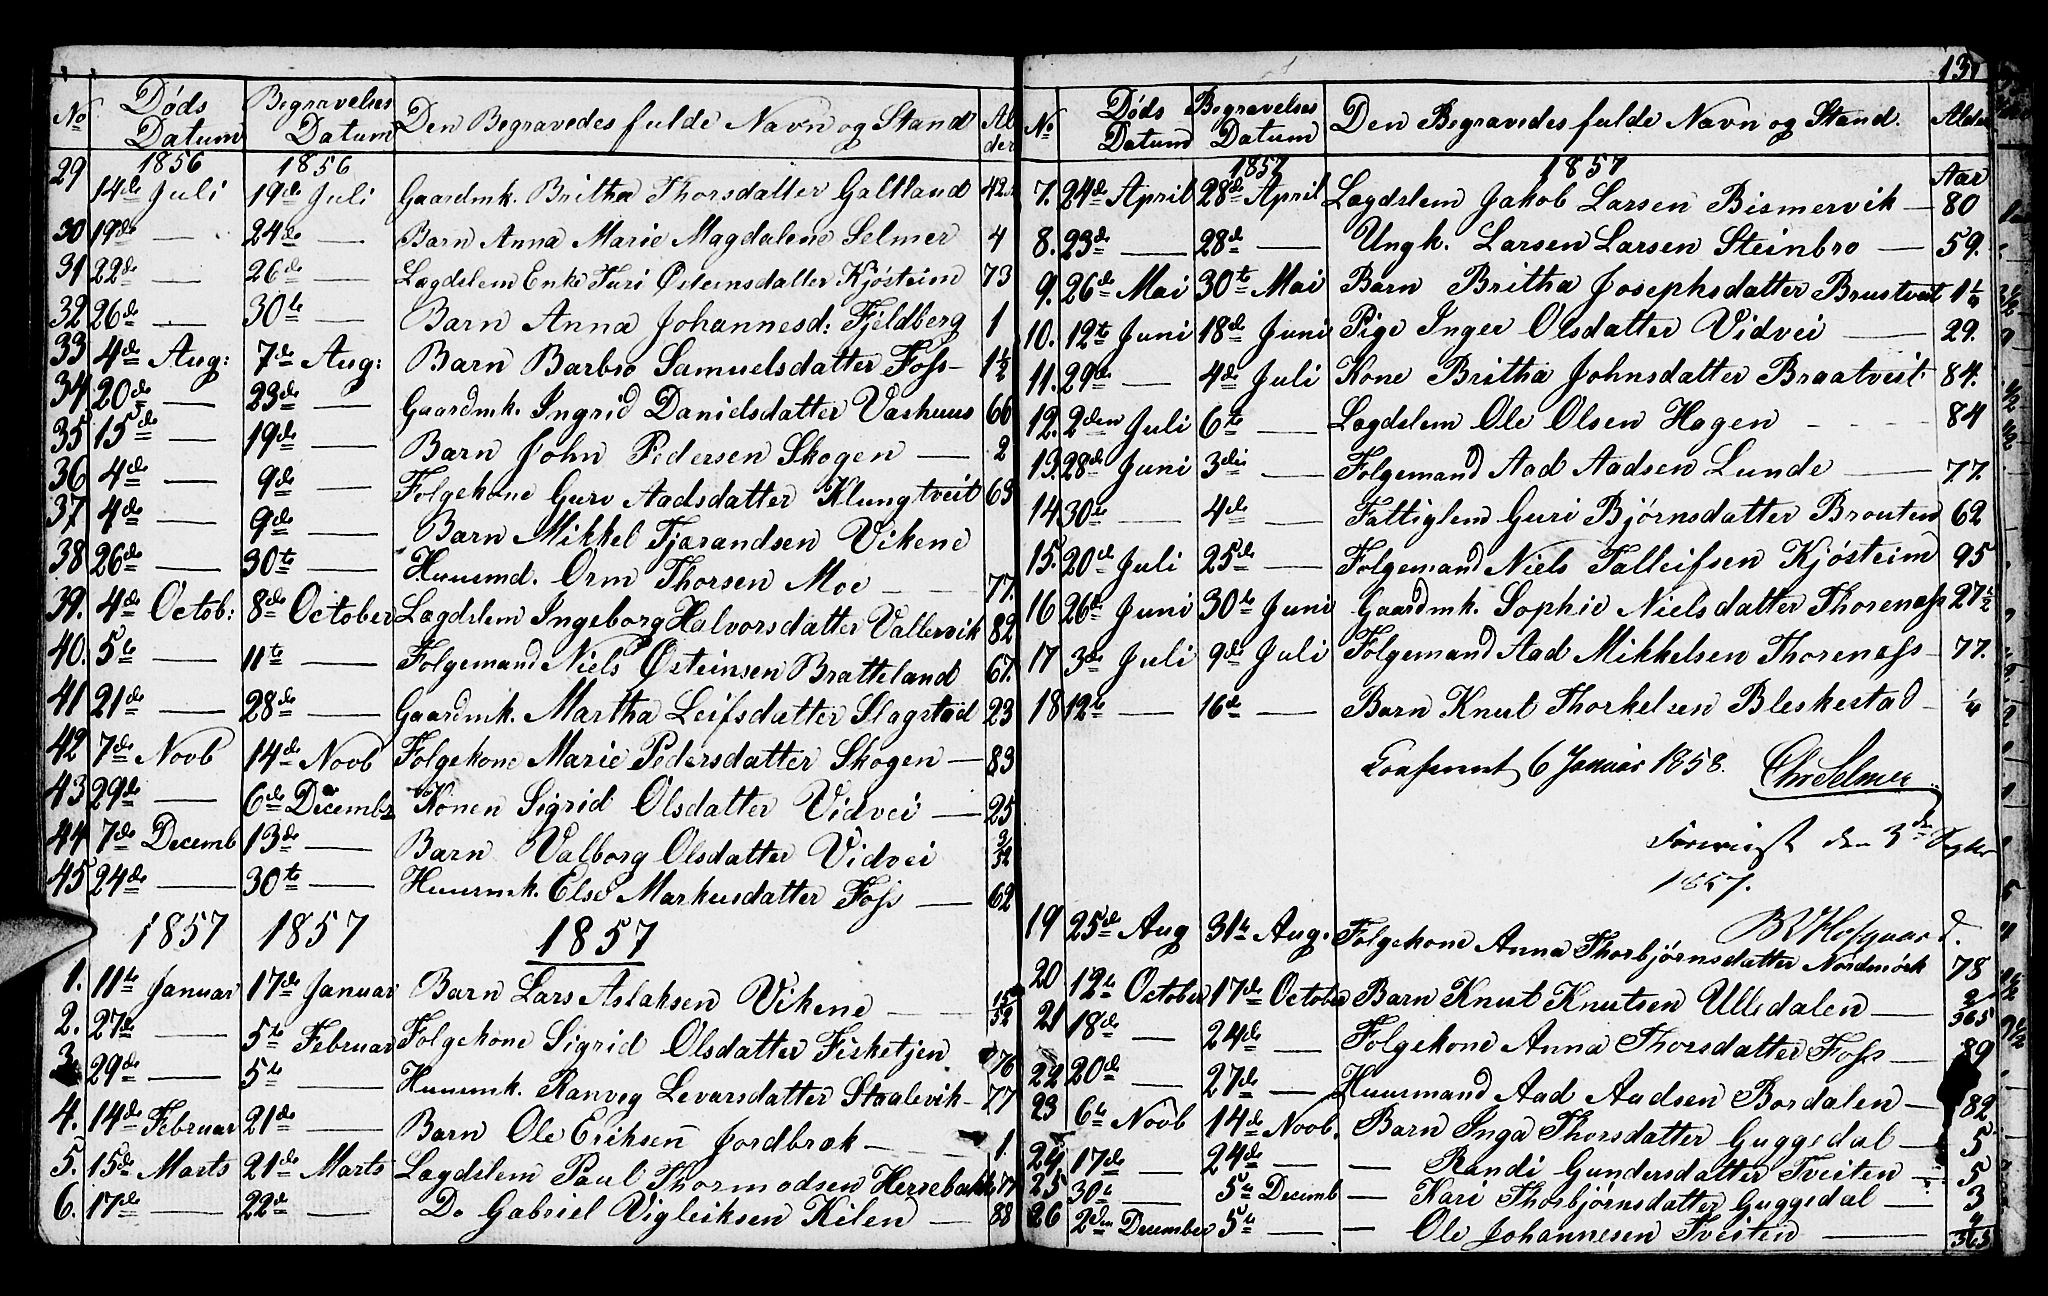 No Døds Datum Begravelses Datum Den Begravedes fulde Navn og Stand Alder
1856 1856
29 14de Juli 19de Juli Gaardmk. Britha Thorsdatter Galtland 42
30 19de — 24de — Barn Anna Marie Magdalene Selmer 4
31 22de — 26de — Lægdslem Enke Turi Østeinsdatter Kjøsteim 73
32 26de — 30te — Barn Anna Johannesd: Fjeldberg 1
33 4de Aug: 7de Aug: Barn Barbro Samuelsdatter Foss — 1½
34 20de — 23de — Gaardmk. Ingrid Danielsdatter Vashuus 66
35 15de — 19de — Barn John Pedersen Skogen — 2
36 4de — 9de — Folgekone Guro Aadsdatter Klungtveit 63
37 4de — 9de — Barn Mikkel Tjerandsen Vikene
38 26de — 30te — Huusmd. Orm Thorsen Moe — — 77.
39. 4de Octob: 8de October Lægdslem Ingeborg Halvorsdatter Vallervik 82
40. 5te — 11te — Folgemand Niels Østeinsen Bratteland 67.
41 21de — 28de — Gaardmk. Martha Leifsdatter Slagstad 23
42 7de Novb 14de Novb Folgekone Marie Pedersdatter Skogen — 83
43 29de — 6de Decembr Konen Sigrid Olsdatter Vidvei — 25
44 7de Decemb 13de — Barn Valborg Olsdatter Vidvei 3/52
45 24de — 30te — Huusmk. Else Markusdatter Foss — 62
1857 1857 1857
1. 11te Januar 17de Januar Barn Lars Aslaksen Vikene — — 15/52
2. 27de — 5te Februar Folgekone Sigrid Olsdatter Fisketjen 76
3. 29de — 5te — Huusmk. Ranveg Levarsdatter Staalevik — 77
4. 14de Februar 21de — Barn Ole Eriksen Jordbræk — — — 1.
5. 15de Marts 21de Marts Lægdslem Paul Thormodsen Hersebakke 77
6. 17de — 22de — Do Gabriel Vigleiksen Kilen — 88
131
No Døds Datum Begravelses Datum Den Begravedes fulde Navn og Stand. Alder
1857 1857 Aar
7. 24de April 28de April Lægdslem Jakob Larsen Bismervik — 80
8. 23de — 28de — Ungk. Larsen Larsen Steinbro — 59.
9. 26de Mai 30te Mai Barn Britha Josephsdatter Brustveit 1¼
10. 12te Juni 18de Juni Pige Inger Olsdatter Vidvei — 29.
11. 29de — 4de Juli Kone Britha Johnsdatter Braatveit 84.
12. 2den Juli 6te — Lægdslem Ole Olsen Hagen — — — 84
13. 28de Juni 3die — Folgemand Aad Aadsen Lunde — 77.
14 30te — 4de — Fattiglem Guri Bjørnsdatter Brouten 62
15. 20de Juli 25de — Folgemand Niels Talleifsen Kjøsteim 95
16 26de Juni 30te Juni Gaardmk. Sophie Nielsdatter Thoreness 27½
17 3de Juli 9de Juli Folgemand Aad Mikkelsen Thoreness — 77.
18 12te — 16de — Barn Knut Thorkelsen Bleskestad — ¼
Conferert 6 Januar 1858. Chr Selmer
den 3de
1857.
19 25de Aug 31te Aug. Folgekone Anna Thorbjørnsdatter Nordmork 78
20 12te October 17de October Barn Knut Knutsen Ulledalen — 2/365
21 18de — 24de — Folgekone Anna Thorsdatter Foss — 89
22 20de — 27de — Huusmand Aad Aadsen Bordalen — 82
23 6te Novb 14de Novb. Barn Inga Thorsdatter Guggedal — 5
24 17de — 24de — — Randi Gundersdatter Tveiten — 5
25 30te — 5te Decemb — Kari Thorbjørnsdatter Guggedal — 3
26 2den December 5te — — Ole Johannesen Tveiten — 4/365